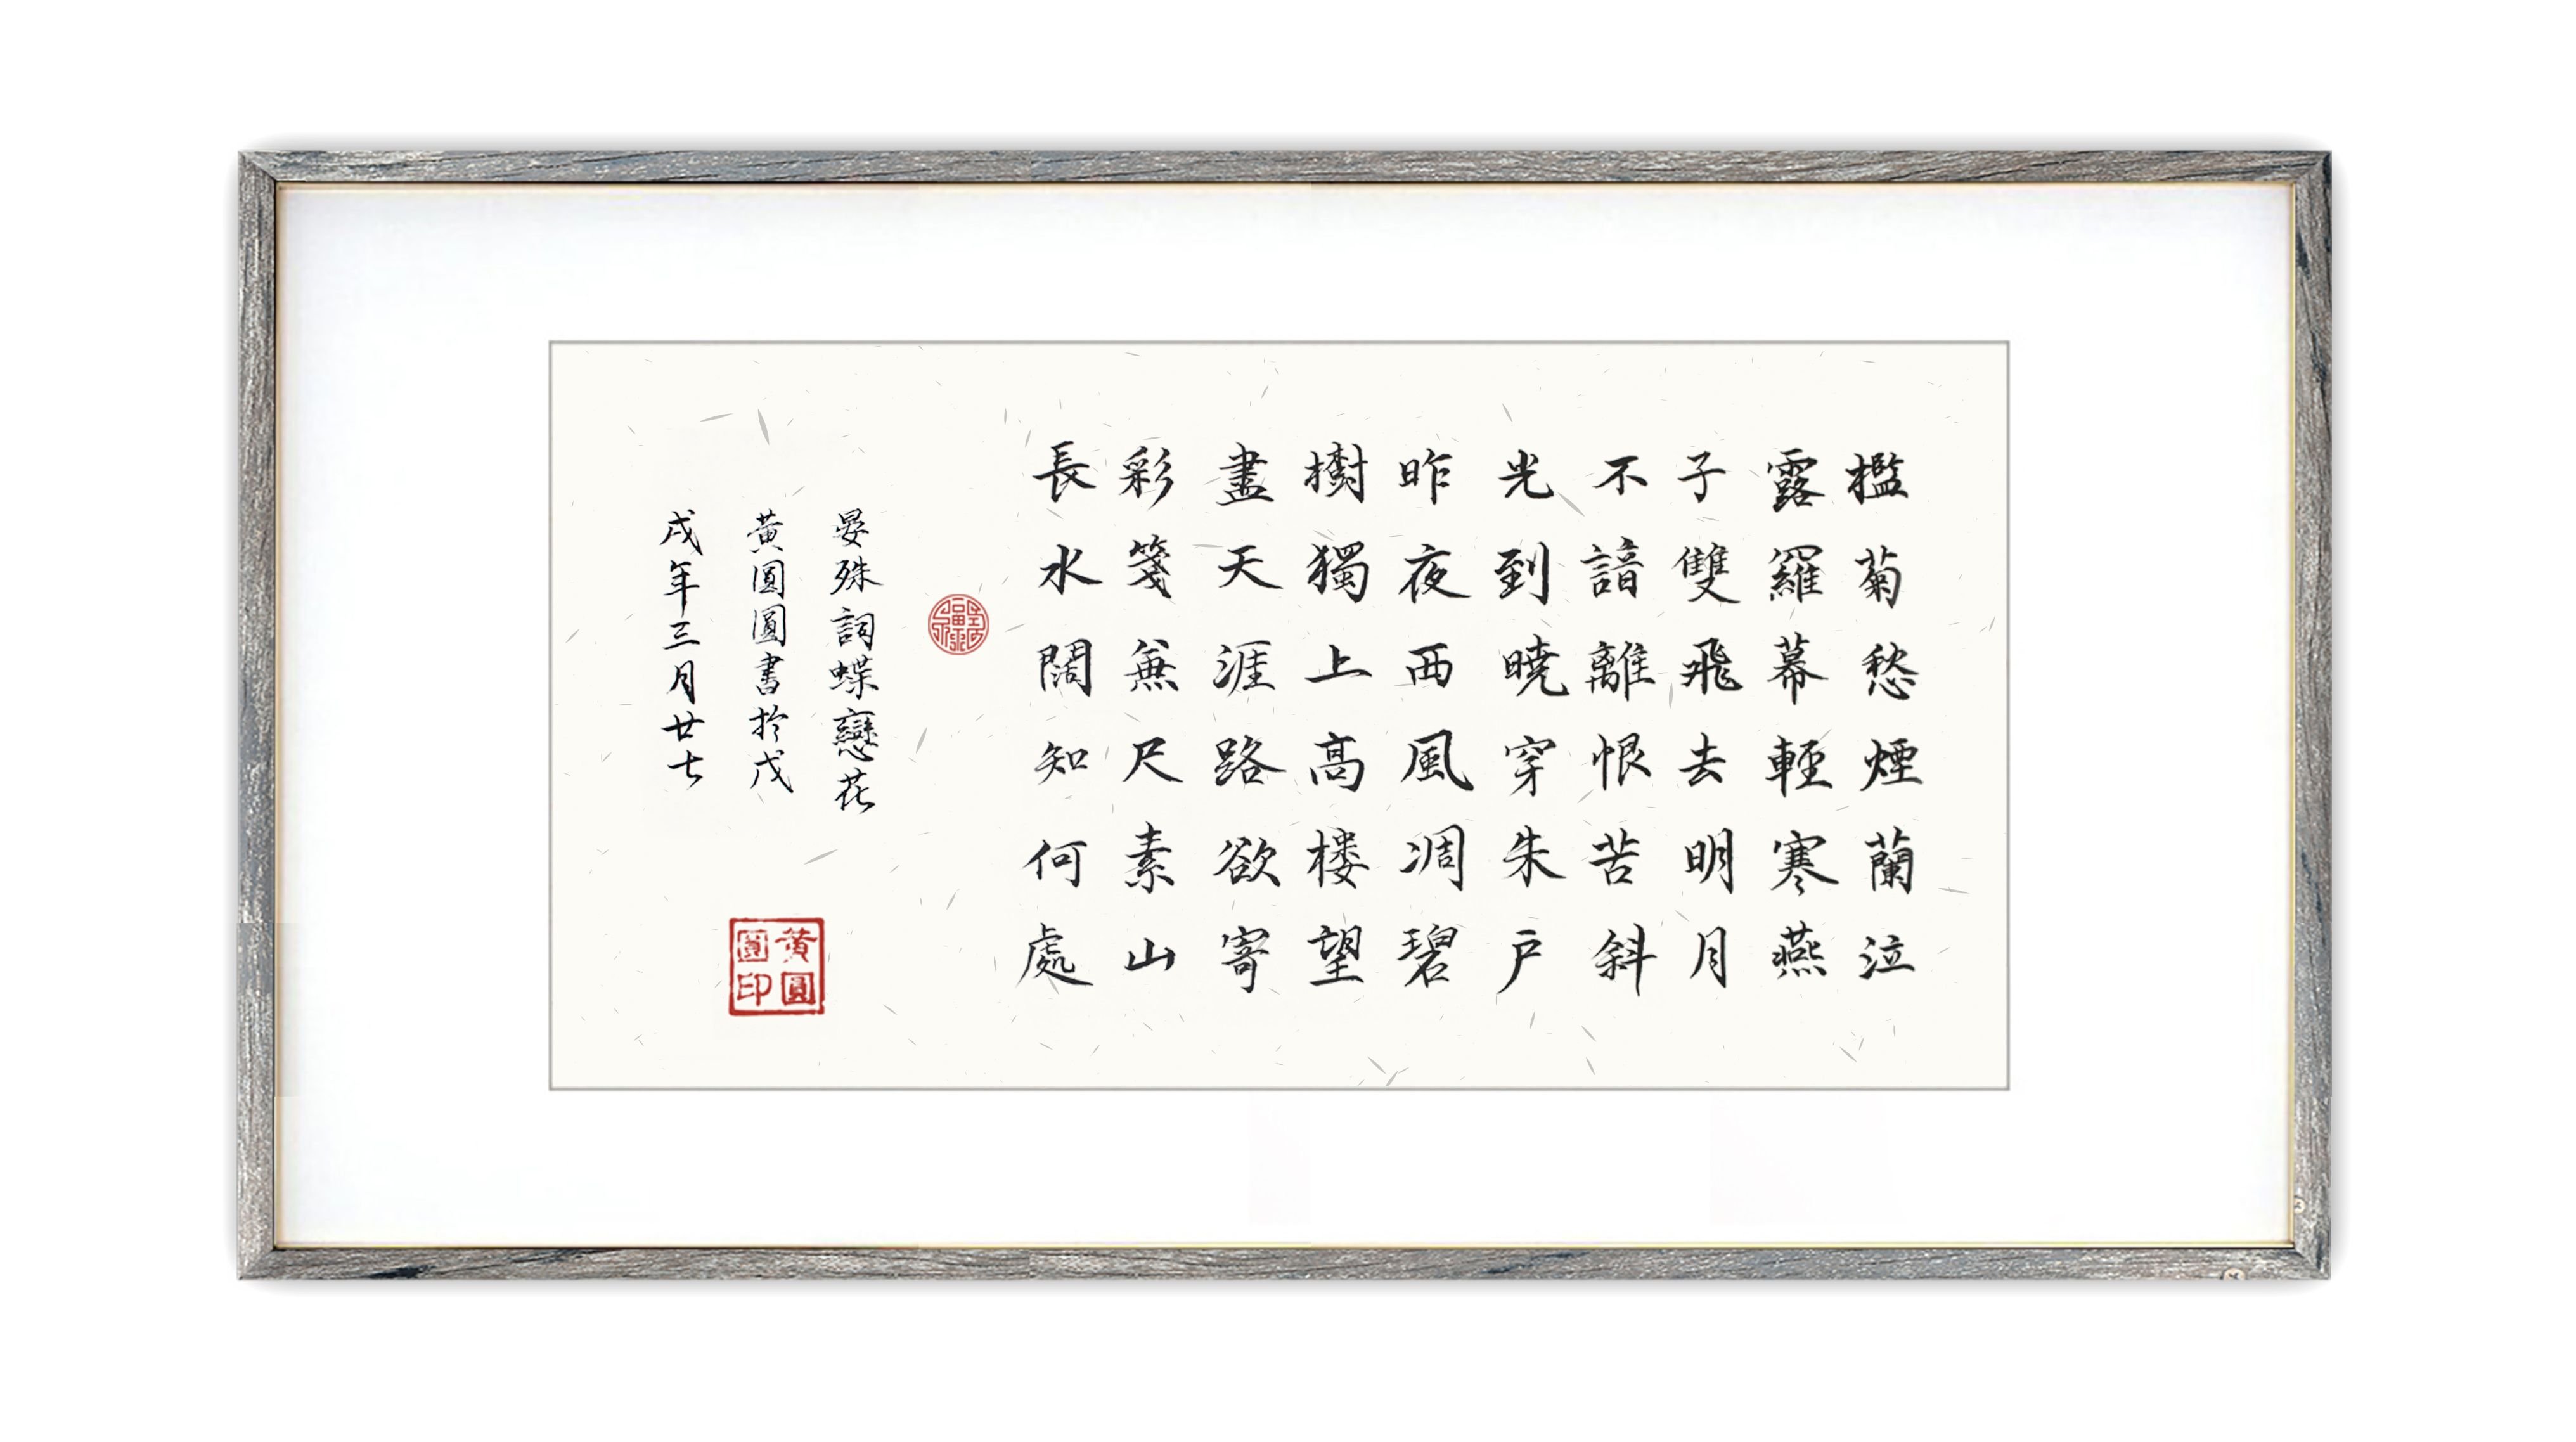 檻菊愁煙蘭泣
露羅幕輕寒燕
子雙飛去明月
不諳離恨苦斜
光到曉穿朱戶
昨夜西風凋碧
樹獨上高楼望
盡天涯路欲寄
彩箋無尺素山
長水闊知何處
晏殊詞蝶戀花
黃圓圓書於戊
戌年三月廿七
黃圓
圓印